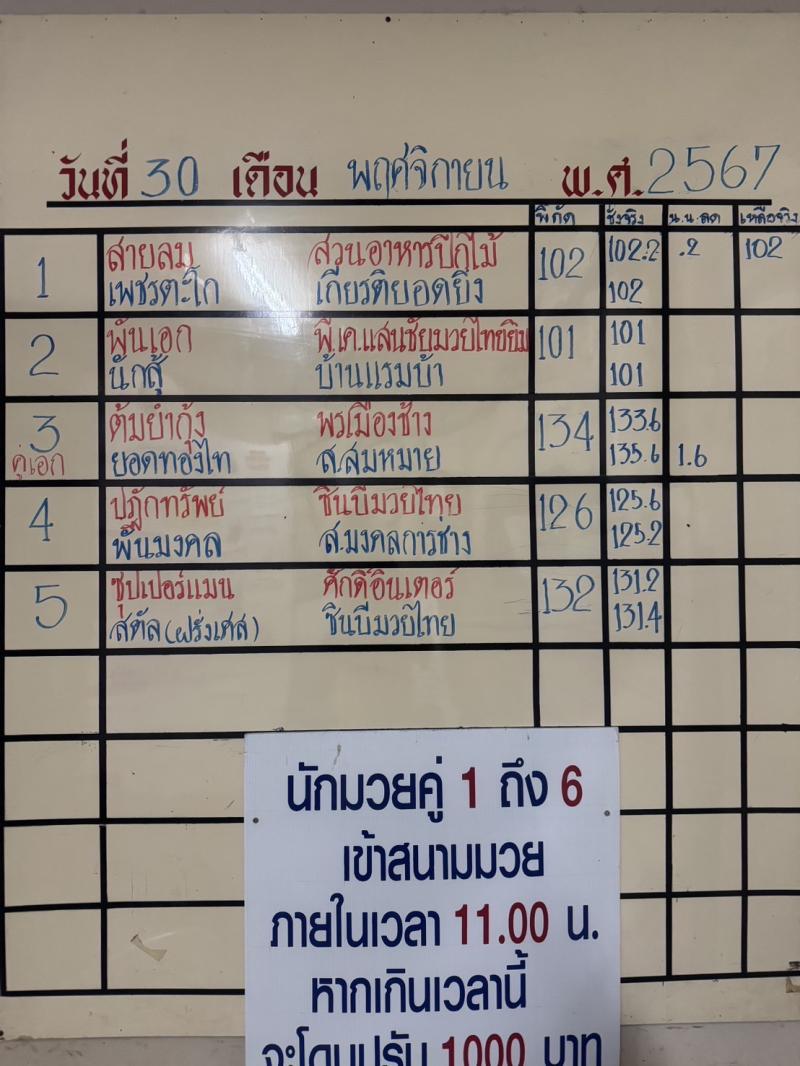 วันที่ 30 เดือน พฤศจิกายน พ.ศ. 2567
พิกัด ชั่งจริง น.น.ลด เหลือจริง
1 สายลม สวนอาหารปีกไม้ 102 102.2 .2 102
เพชรตะโก เกียรติยอดยิ่ง 102
2 พันเอก พี.เค.แสนชัยมวยไทยยิม 101 101
นักสู้ บ้านแรมบ้า 101
3 ต้มยำกุ้ง พรเมืองช้าง 134 133.6
คู่เอก ยอดทองไท ส.สมหมาย 135.6 1.6
4 ปฏักทรัพย์ ชินบีมวยไทย 126 125.6
พันมงคล ส.มงคลการช่าง 125.2
5 ซุปเปอร์แมน ศักดิ์อินเตอร์ 132 131.2
สตัล (ฝรั่งเศส) ชินบีมวยไทย 131.4
นักมวยคู่ 1 ถึง 6
เข้าสนามมวย
ภายในเวลา 11.00 น.
หากเกินเวลานี้
จะโดนปรับ 1000 บาท